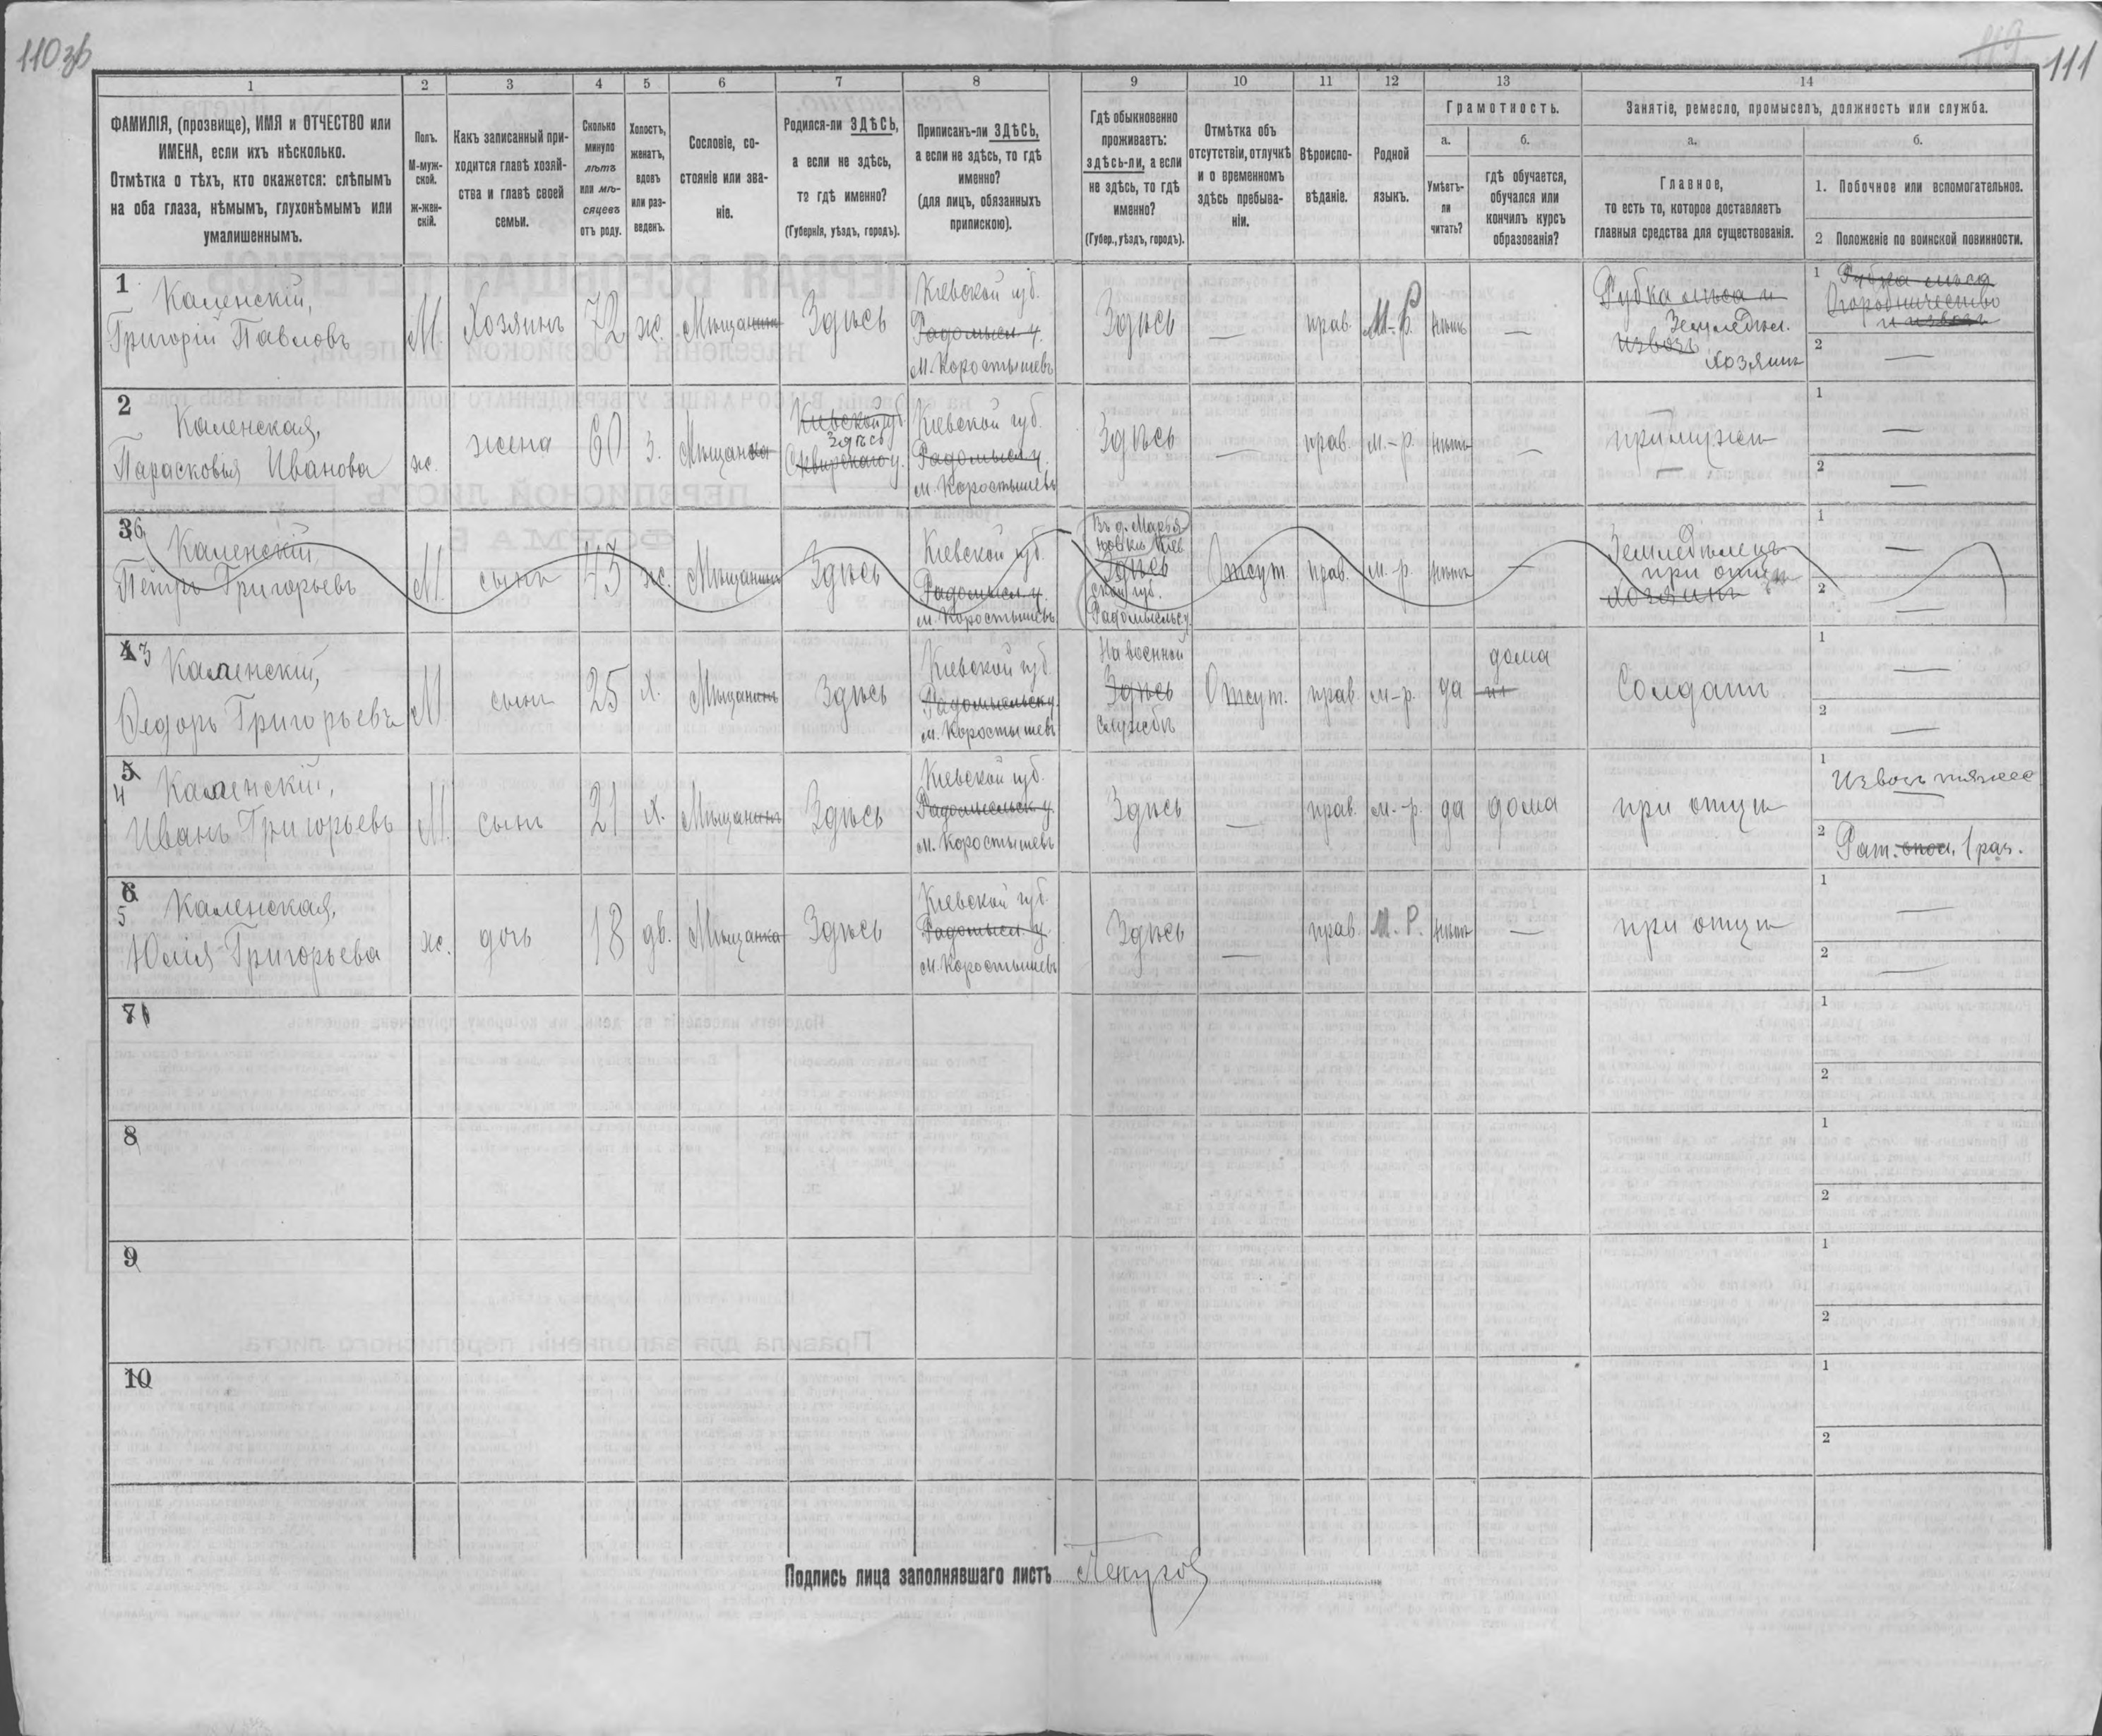 110 зв
119
111
1
2
3
4
5
6
7
8
9
10
11
12
13
14
ФАМИЛІЯ, (прозвище), ИМЯ и ОТЧЕСТВО или
ИМЕНА, если ихъ нѣсколько.
Отмѣтка о тѣхъ, кто окажется: слѣпымъ
на оба глаза, нѣмымъ, глухонѣмымъ или
умалишеннымъ.
Полъ.
М-муж-
ской.
Ж-жен-
скій.
Какъ записанный при-
ходится главѣ хозяй-
ства и главѣ своей
семьи.
Сколько
минуло
лѣтъ
или мѣ-
сяцевъ
отъ роду.
Холостъ,
женатъ,
вдовъ
или раз-
веденъ.
Сословіе, со-
стояніе или зва-
ніе.
Родился-ли ЗДѢСЬ,
а если не здѣсь,
то гдѣ именно?
(Губернія, уѣздъ, городъ).
Приписанъ-ли ЗДѢСЬ,
а если не здѣсь, то гдѣ
именно?
(для лицъ, обязанныхъ
припискою).
Гдѣ обыкновенно
проживаетъ:
здѣсь-ли, а если
не здѣсь, то гдѣ
именно?
(Губер., уѣздъ, городъ).
Отмѣтка объ
отсутствіи, отлучкѣ
и о временномъ
здѣсь пребыва-
ніи.
Вѣроиспо-
вѣданіе.
Родной
языкъ.
Грамотность.
а.
Умѣетъ-
ли
читать?
б.
гдѣ обучается,
обучался или
кончилъ курсъ
образованія?
Занятіе, ремесло, промыселъ, должность или служба.
а.
Главное,
то есть то, которое доставляетъ
главныя средства для существованія.
б.
1. Побочное или вспомогательное.
2 Положеніе по воинской повинности.
1
Каленскій,
Григорій Павловъ
М.
Хозяинъ
72
ж.
Мѣщанинъ
Здѣсь
Кіевской губ.
Радомысл. у.
м. Коростышевъ
Здѣсь
—
прав.
М.-Р.
нѣтъ
—
Рубка лѣса и
Земледѣл.
извозъ
хозяинъ
1 Рубка лѣса
Огородничество
и извозъ
2 —
2
Каленская,
Парасковья Иванова
ж.
жена
60
з.
Мѣщанка
Кіевской губ.
Здѣсь
Сквирскаго у.
Кіевской губ.
Радомысл. у.
м. Коростышевъ
Здѣсь
—
прав.
м.-р.
нѣтъ
—
при мужѣ
1 —
2 —
3 6
Каленскій,
Петръ Григорьевъ
М.
сынъ
45
ж.
Мѣщанинъ
Здѣсь
Кіевской губ.
Радомысл. у.
м. Коростышевъ
Въ д. Марья
новкѣ Кіев
Здѣсь
ской губ.
Радомысльс. у.
Отсут.
прав.
м.-р.
нѣтъ
—
Земледѣлецъ
при отцѣ
хозяинъ
1 —
2 —
4 3
Каленскій,
Федоръ Григорьевъ
М
сынъ
25
х.
Мѣщанинъ
Здѣсь
Кіевской губ.
Радомысльск. у.
м. Коростышевъ
На военной
Здѣсь
службѣ
Отсут.
прав.
м-р.
да
дома
Солдатъ
1 —
2 —
5
4
Каленскій,
Иванъ Григорьевъ
М.
сынъ
21
х.
Мѣщанинъ
Здѣсь
Кіевской губ.
Радомысльск. у.
м. Коростышевъ
Здѣсь
—
прав.
м.-р.
да
дома
при отцѣ
1 Извозъ
2 Рат. опол. 1 раз.
6
5
Каленская,
Юлія Григорьева
ж.
дочь
18
дѣ.
Мѣщанка
Здѣсь
Кіевской губ.
Радомысл. у.
м. Коростышевъ
Здѣсь
—
прав.
М. Р.
нѣтъ
—
при отцѣ
1 —
2 —
7
1
2
8
1
2
9
1
2
10
1
2
Подпись лица заполнявшаго листъ